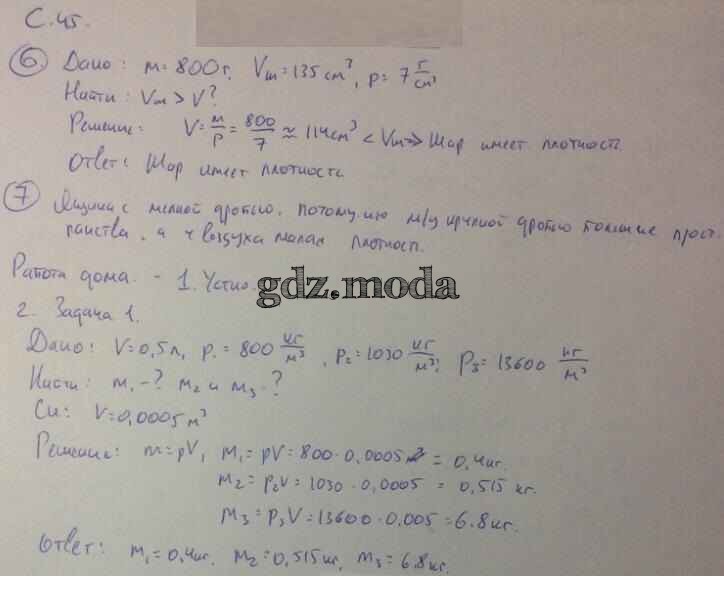 С. 45.
6 Дано: m = 800 г, Vш = 135 см³, ρ = 7 г/см³
Найти: Vш > V?
Решение: V = m/ρ = 800/7 ≈ 114 см³ < Vш => Шар имеет плотность.
Ответ: Шар имеет плотность
7 Ящика с мелкой дробью. Потому что м/у крупной дробью больше прост-
ранства, а у воздуха малая плотность.
Работа дома. - 1. Устно.
gdz.moda
2. Задача 1.
Дано: V = 0,5 л, ρ₁ = 800 кг/м³, ρ₂ = 1030 кг/м³, ρ₃ = 13600 кг/м³
Найти: m₁ -? m₂ и m₃ -?
Си: V = 0,0005 м³
Решение: m = ρV, m₁ = ρV = 800 · 0,0005 = 0,4 кг.
m₂ = ρ₂V = 1030 · 0,0005 = 0,515 кг.
m₃ = ρ₃V = 13600 · 0.005 = 6.8 кг.
Ответ: m₁ = 0,4 кг. m₂ = 0,515 кг, m₃ = 6.8 кг.